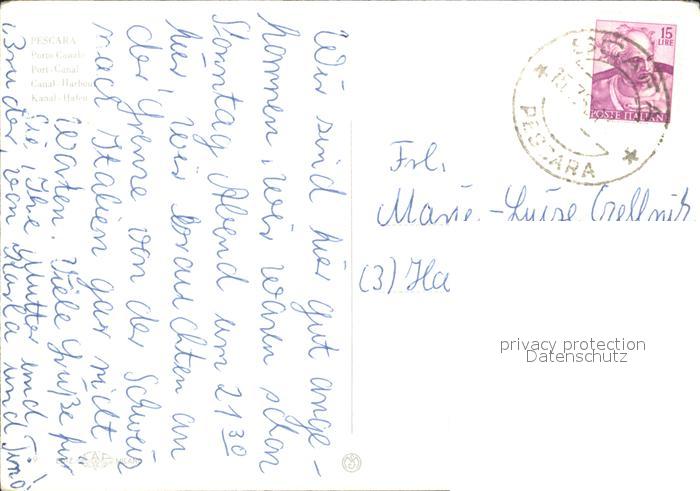 PESCARA
Porto Canale
Port-Canal
Canal-Harbour
Kanal-Hafen
Wir sind hier gut ange-
kommen, wir waren schon
Sonntag Abend um 21 30
hier, wir brauchten an
der Grenze von der Schweiz
nach Italien gar nicht
warten. Viele Grüße für
Sie, Ihre Mutter und
Bruder, von Karla und Timo
15
LIRE
POSTE ITALIANE
PESCARA
Frl.
Marie-Luise
(3) Ha
privacy protection
Datenschutz